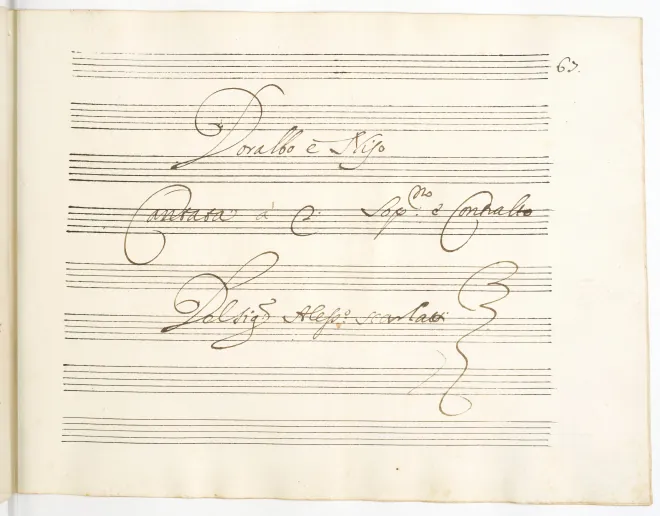 63.
Doralbo è Niso
Cantata à 2. Sop.no è Contralto
Del Sig.r Aless.o Scarlatti